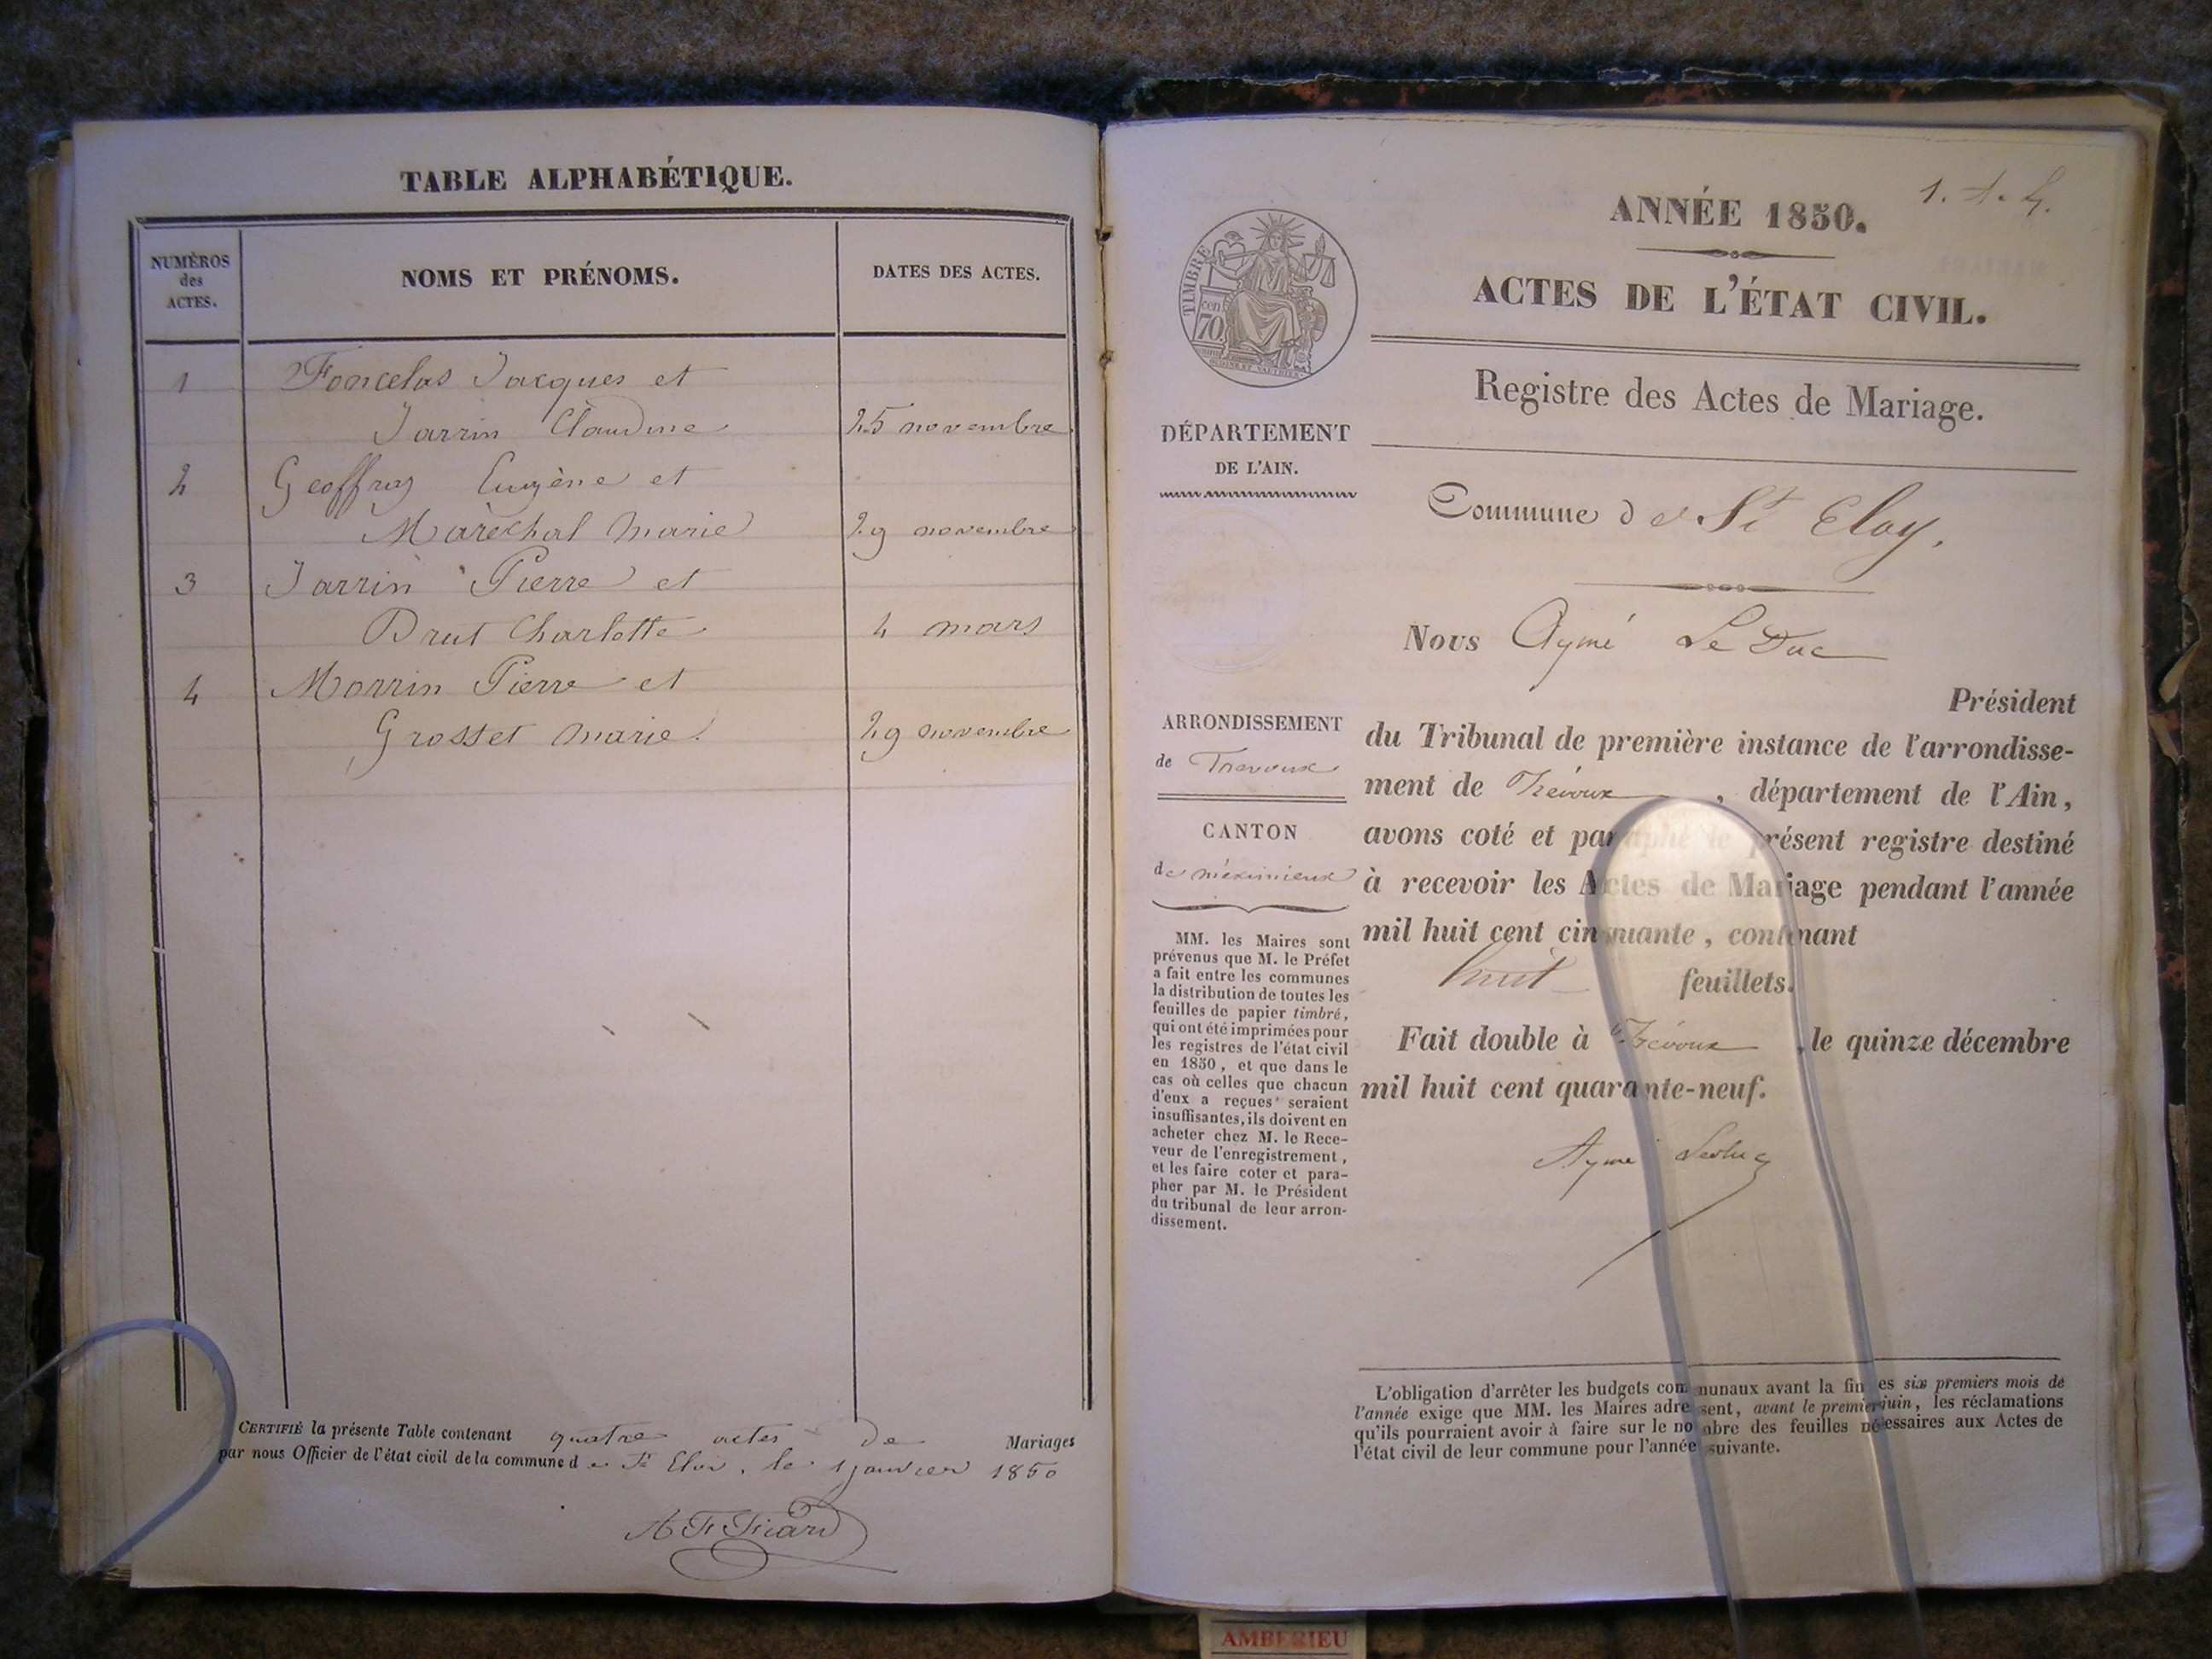 TABLE ALPHABÉTIQUE.
NUMÉROS
des
ACTES.
NOMS ET PRÉNOMS.
DATES DES ACTES.
1 Foncelas Jacques et
Jarrin Claudine 25 novembre
2 Geoffray Eugène et
Maréchal Marie 29 novembre
3 Jarrin Pierre et
Brut Charlotte 4 mars
4 Morrin Pierre et
Grosset Marie. 29 novembre
CERTIFIÉ la présente Table contenant quatre actes de Mariages
par nous Officier de l'état civil de la commune de St Eloi, le 1 janvier 1850
1.
ANNÉE 1850.
ACTES DE L'ÉTAT CIVIL.
TIMBRE
cen
70.
Registre des Actes de Mariage.
DÉPARTEMENT
DE L'AIN.
Commune de St Eloy.
Nous Aymé Le Duc
Président
ARRONDISSEMENT
de Trevoux
CANTON
de meximieux
du Tribunal de première instance de l'arrondisse-
ment de Trévoux, département de l'Ain,
avons coté et paraphé le présent registre destiné
à recevoir les Actes de Mariage pendant l'année
mil huit cent cinquante, contenant
huit feuillets.
Fait double à Trévoux, le quinze décembre
mil huit cent quarante-neuf.
Ayme Leduc
MM. les Maires sont
prévenus que M. le Préfet
a fait entre les communes
la distribution de toutes les
feuilles de papier timbré,
qui ont été imprimées pour
les registres de l'état civil
en 1850, et que dans le
cas où celles que chacun
d'eux a reçues seraient
insuffisantes, ils doivent en
acheter chez M. le Rece-
veur de l'enregistrement,
et les faire coter et para-
pher par M. le Président
du tribunal de leur arron-
dissement.
L'obligation d'arrêter les budgets communaux avant la fin des six premiers mois de
l'année exige que MM. les Maires adressent, avant le premier juin, les réclamations
qu'ils pourraient avoir à faire sur le nombre des feuilles nécessaires aux Actes de
l'état civil de leur commune pour l'année suivante.
AMBERIEU